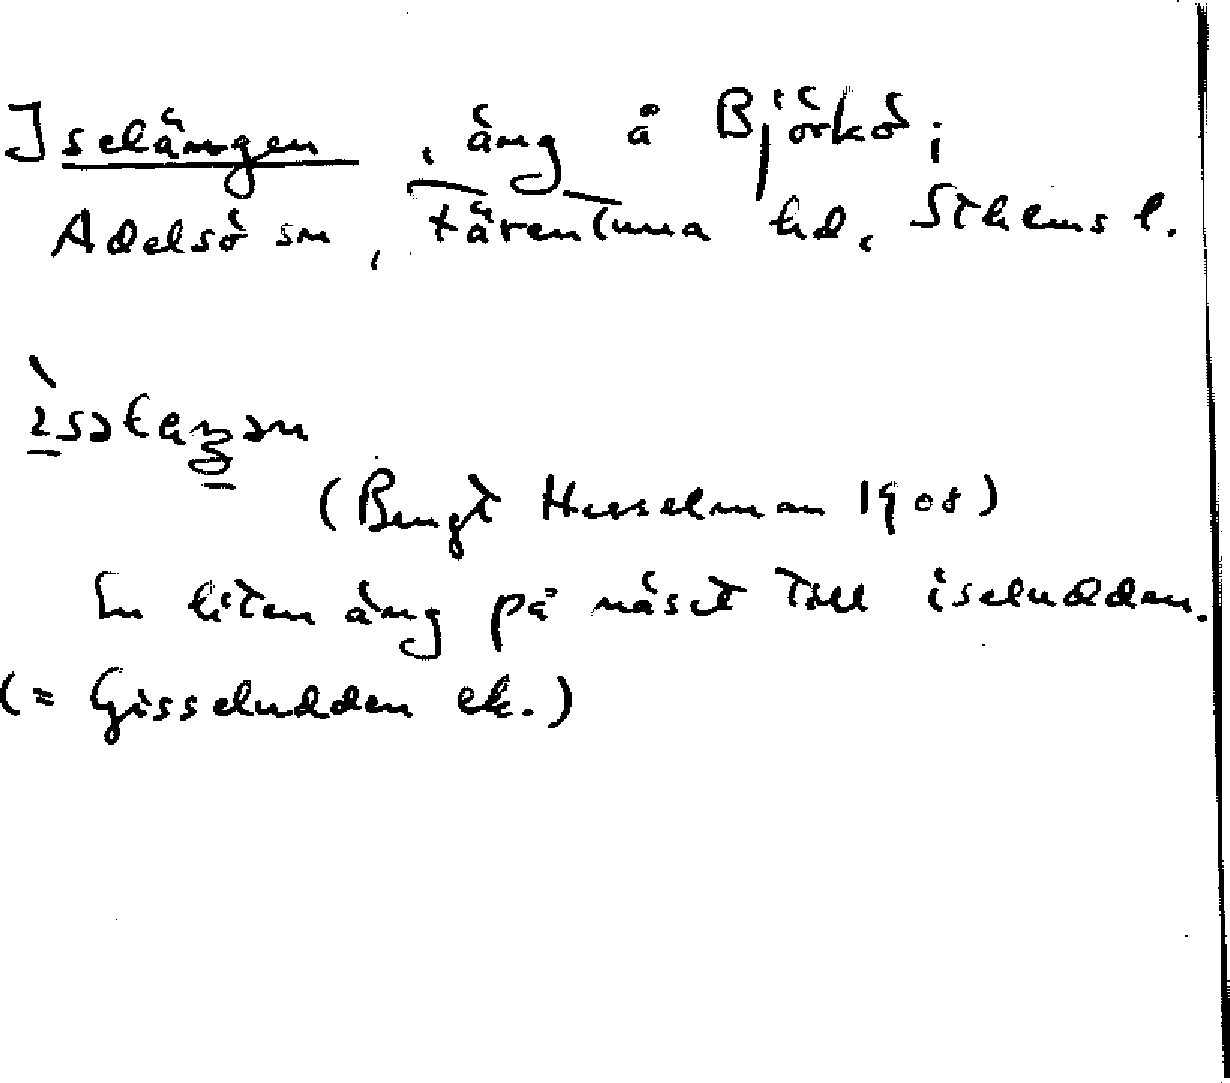 Iselängen, äng å Björkö i
Adelsö sn, Färentuna hd, Sthlms l.
(Bengt Hesselman 1908)
En liten äng på näset till iseludden.
(= Gisseludden ek.)